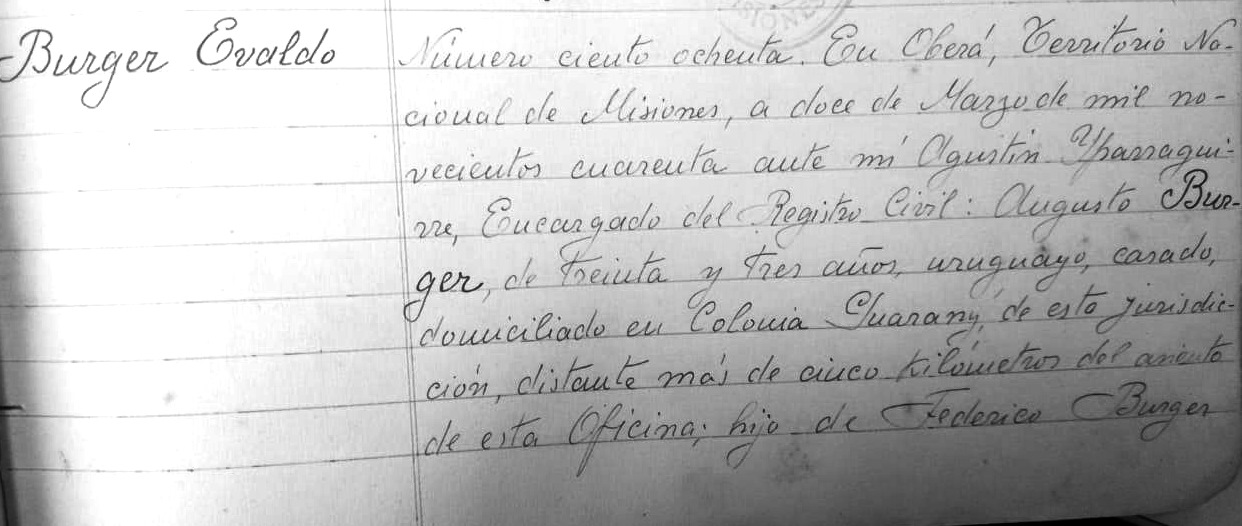 Burger Evaldo
Número ciento ochenta. En Oberá, Territorio Na-
cional de Misiones, a doce de Marzo de mil no-
vecientos cuarenta ante mí Agustín Yparragui-
rre, Encargado del Registro Civil: Augusto Bur-
ger, de treinta y tres años, uruguayo, casado,
domiciliado en Colonia Guarany, de esta jurisdic-
ción, distante más de cinco kilómetros del asiento
de esta Oficina; hijo de Federico Burger